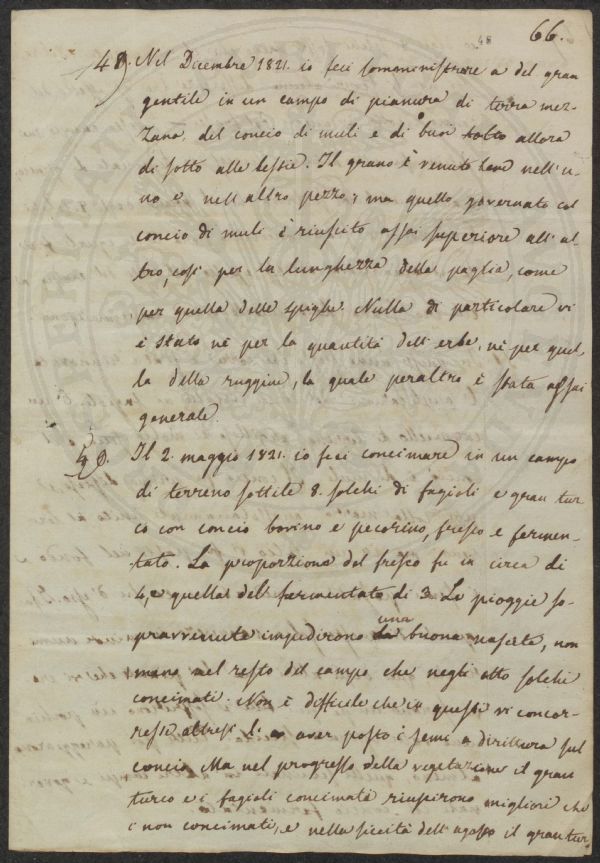 66.
48
48. Nel Dicembre 1821. io feci somministrare a del gran
gentile in un campo di pianura di terra mez-
zana, del concio di muli e di buoi tolto allora
di sotto alle bestie. Il grano è venuto bene nell'u-
no e nell'altro pezzo; ma quello governato col
concio di muli è riuscito assai superiore all'al-
tro, così per la lunghezza della paglia, come
per quella delle spighe. Nulla di particolare vi
è stato nè per la quantità dell'erbe, nè per quel-
la della ruggine, la quale peraltro è stata assai
generale.
49. Il 2. maggio 1821. io feci concimare in un campo
di terreno sottile 8. solchi di fagioli e gran tur
co con concio bovino e pecorino, fresco e fermen-
tato. La proporzione del fresco fu in circa di
4, e quella del fermentato di 3. Le pioggie so-
pravvenute impedirono una buona nascita, non
meno nel resto del campo che negli otto solchi
concimati. Non è difficile che in questi vi concor-
resse altresì l'aver posto i semi a dirittura sul
concio. Ma nel progresso della vegetazione il gran
turco e i fagioli concimati riuscirono migliori che
i non concimati, e nella siccità dell'agosto il gran tur